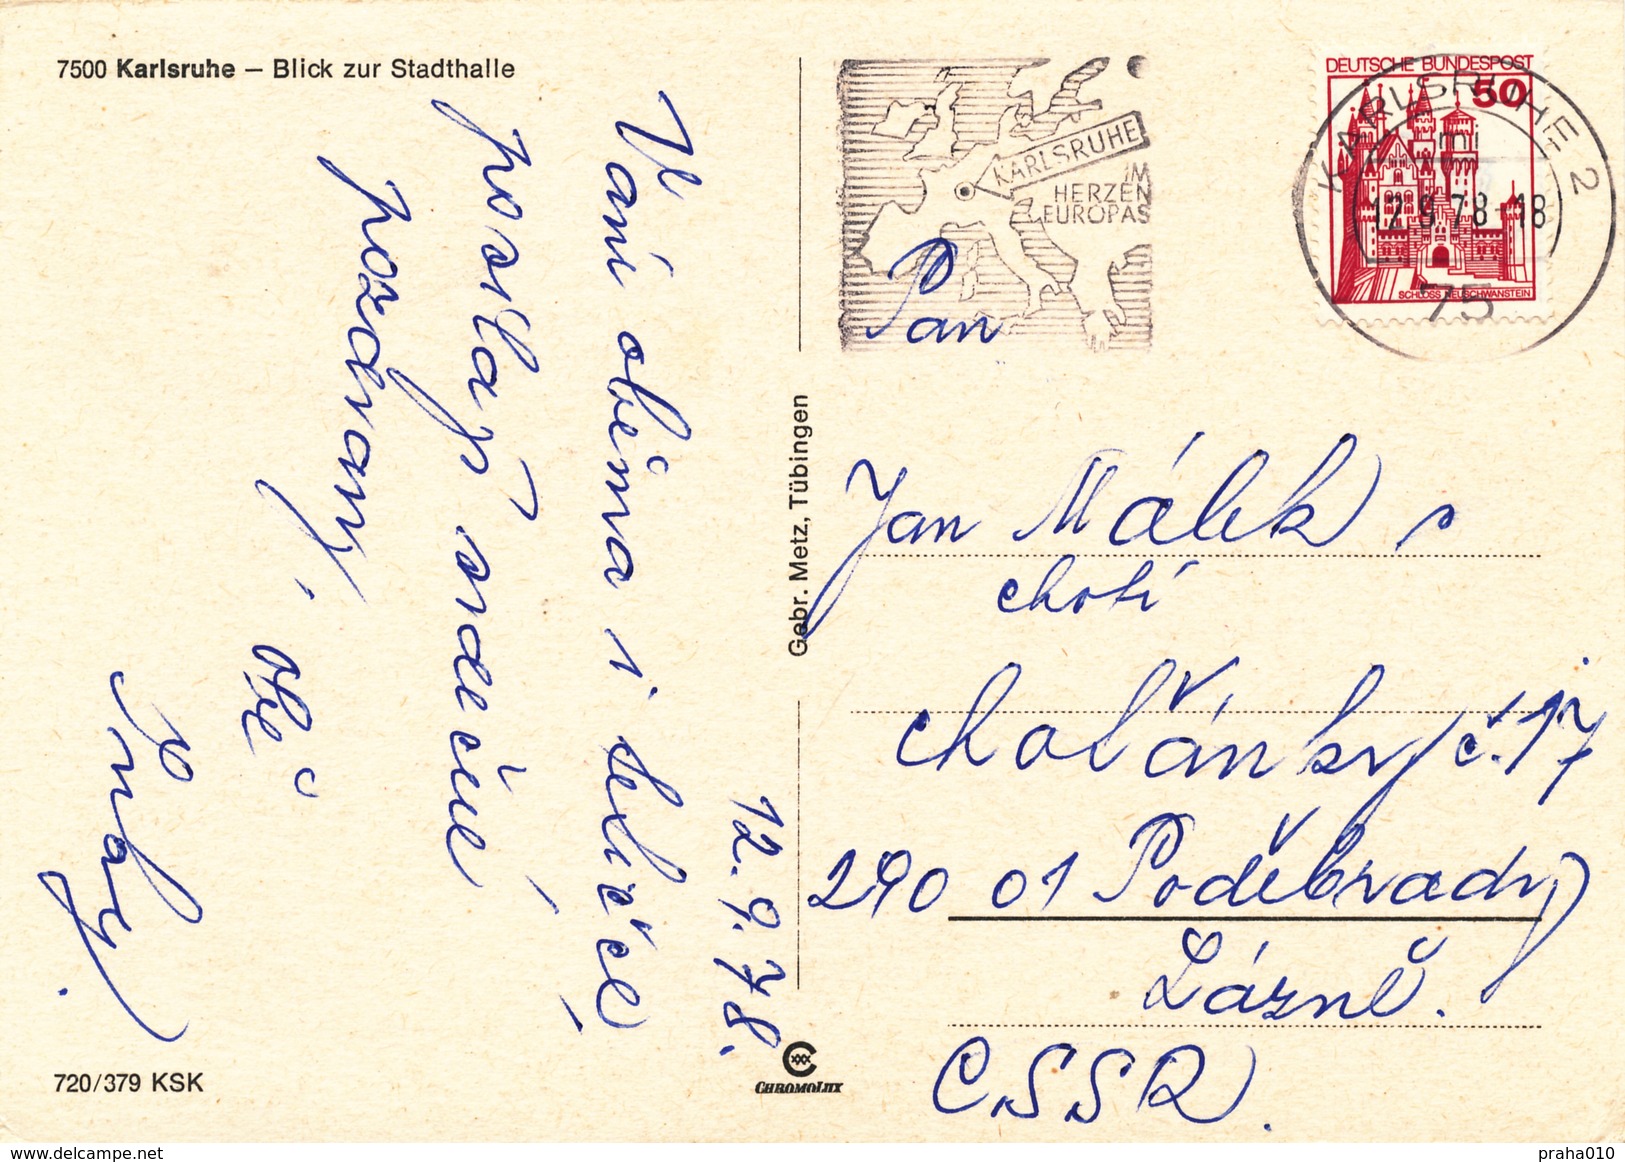 7500 Karlsruhe – Blick zur Stadthalle
12. 9. 78.
Vám oběma i
posílají srdečné
pozdravy.
obě
Gebr. Metz, Tübingen
720/379 KSK
CHROMOLUX
KARLSRUHE
IM
HERZEN
EUROPAS
DEUTSCHE BUNDESPOST
50
SCHLOSS NEUSCHWANSTEIN
KARLSRUHE 2
mi
12.9.78-18
75
Pan
Jan Málek s
chotí
Choťánky č. 17
290 01 Poděbrady
Lázně.
ČSSR.
delcampe.net
praha010